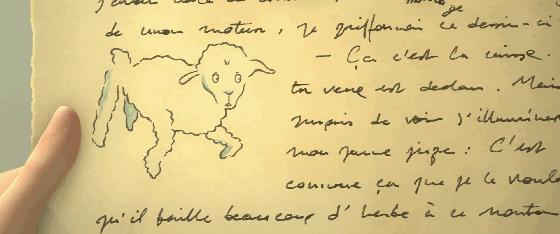 de mon moteur, je griffonnai ce dessin-ci
— Ça c'est la caisse.
tu veux est dedans. Mais
surpris de voir s'illuminer
mon jeune juge : C'est
comme ça que je le voulais
qu'il faille beaucoup d'herbe à ce mouton